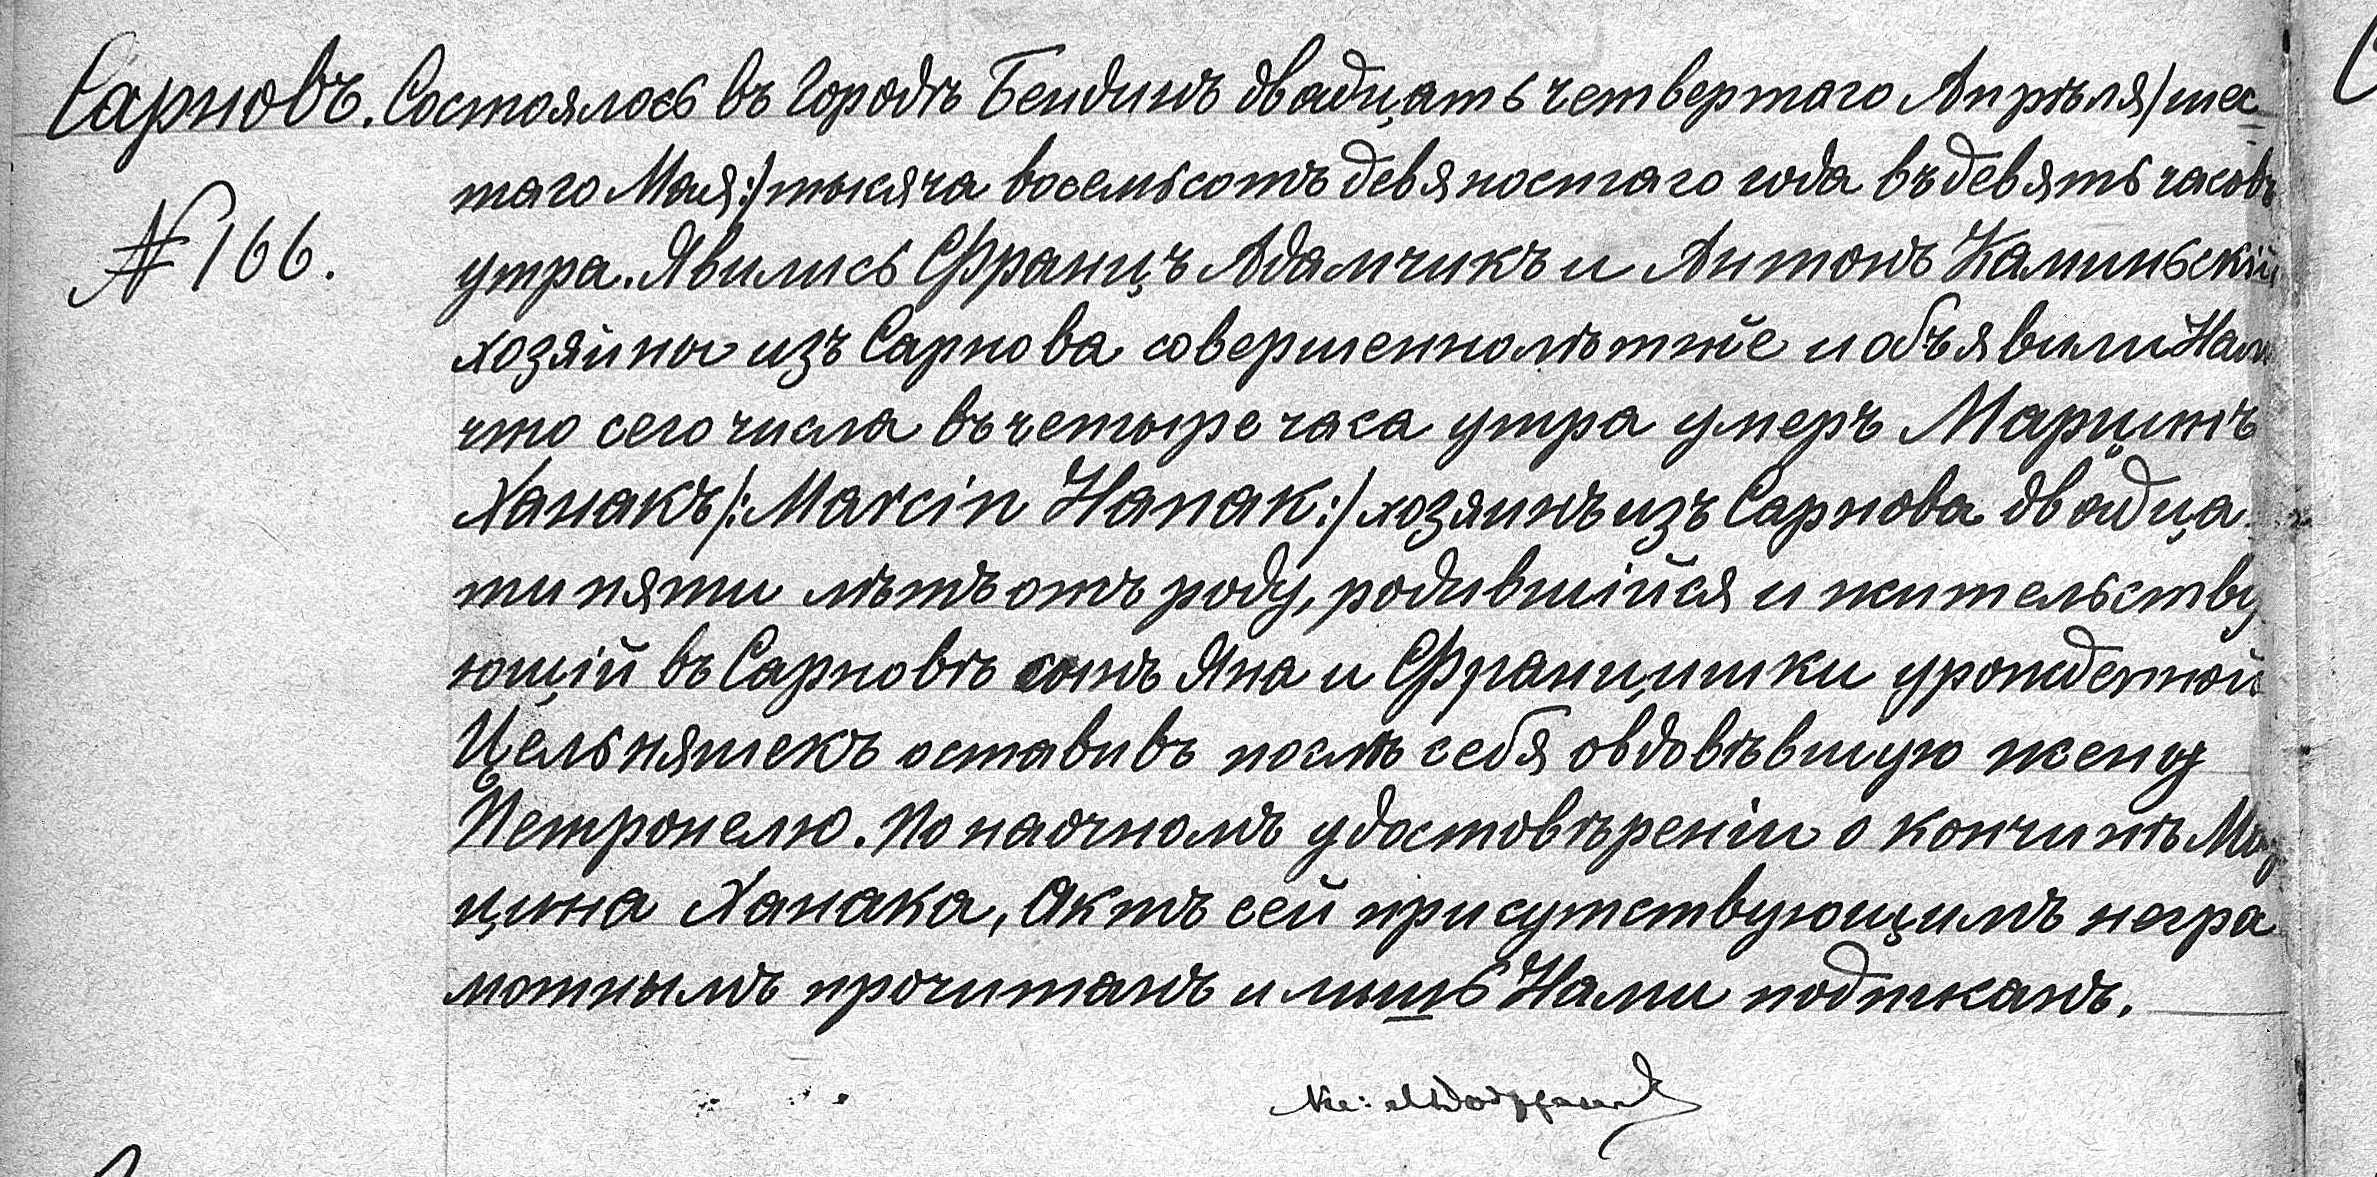 Сарновъ. Состоялось въ Городѣ Бендинѣ двадцать четвертаго Апрѣля/шес-
№166. таго Мая:/тысяча восемьсотъ девяностаго года въ девять часовъ
утра. Явились Францъ Адамчикъ и Антонъ Каминьскій
хозяйны изъ Сарнова совершеннолѣтніе и объявили Намъ
что сего числа въ четыре часа утра умеръ Марцинъ
Ханакъ/:Marcin Hanak:/хозяинъ изъ Сарнова двадца-
ти пяти лѣтъ отъ роду, родившійся и жительству
ющій въ Сарновѣ сынъ Яна и Францишки урожденной
Цельняшекъ оставивъ послѣ себя овдовѣвшую жену
Петронелю. По наочномъ удостовѣреніи о кончинѣ Мар
цина Ханака, Актъ сей присутствующимъ негра
мотнымъ прочитанъ и лишь Нами подписанъ.